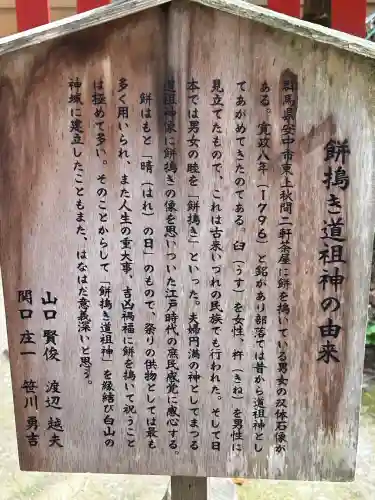 餅搗き道祖神の由来
群馬県安中市東上秋間二軒茶屋に餅を搗いている男女の双体石像が
ある。寛政八年（１７９６）と銘があり部落では昔から道祖神とし
てあがめてきたのである。臼（うす）を女性、杵（きね）を男性に
見立てたもので、これは古来いづれの民族でも行われた。そして日
本では男女の睦を「餅搗き」といった。夫婦円満の神としてまつる
道祖神像に餅搗きの像を思いついた江戸時代の庶民感覚に感心する。
餅はもと「晴（はれ）の日」のもので、祭りの供物としては最も
多く用いられ、また人生の重大事、吉凶禍福に餅を搗いて祝うこと
は極めて多い。そのことからして「餅搗き道祖神」を縁結び白山の
神域に建立したこともまた、はなはだ意義深いと思う。
山口 賢俊　渡辺 越夫
関口 庄一　笹川 勇吉